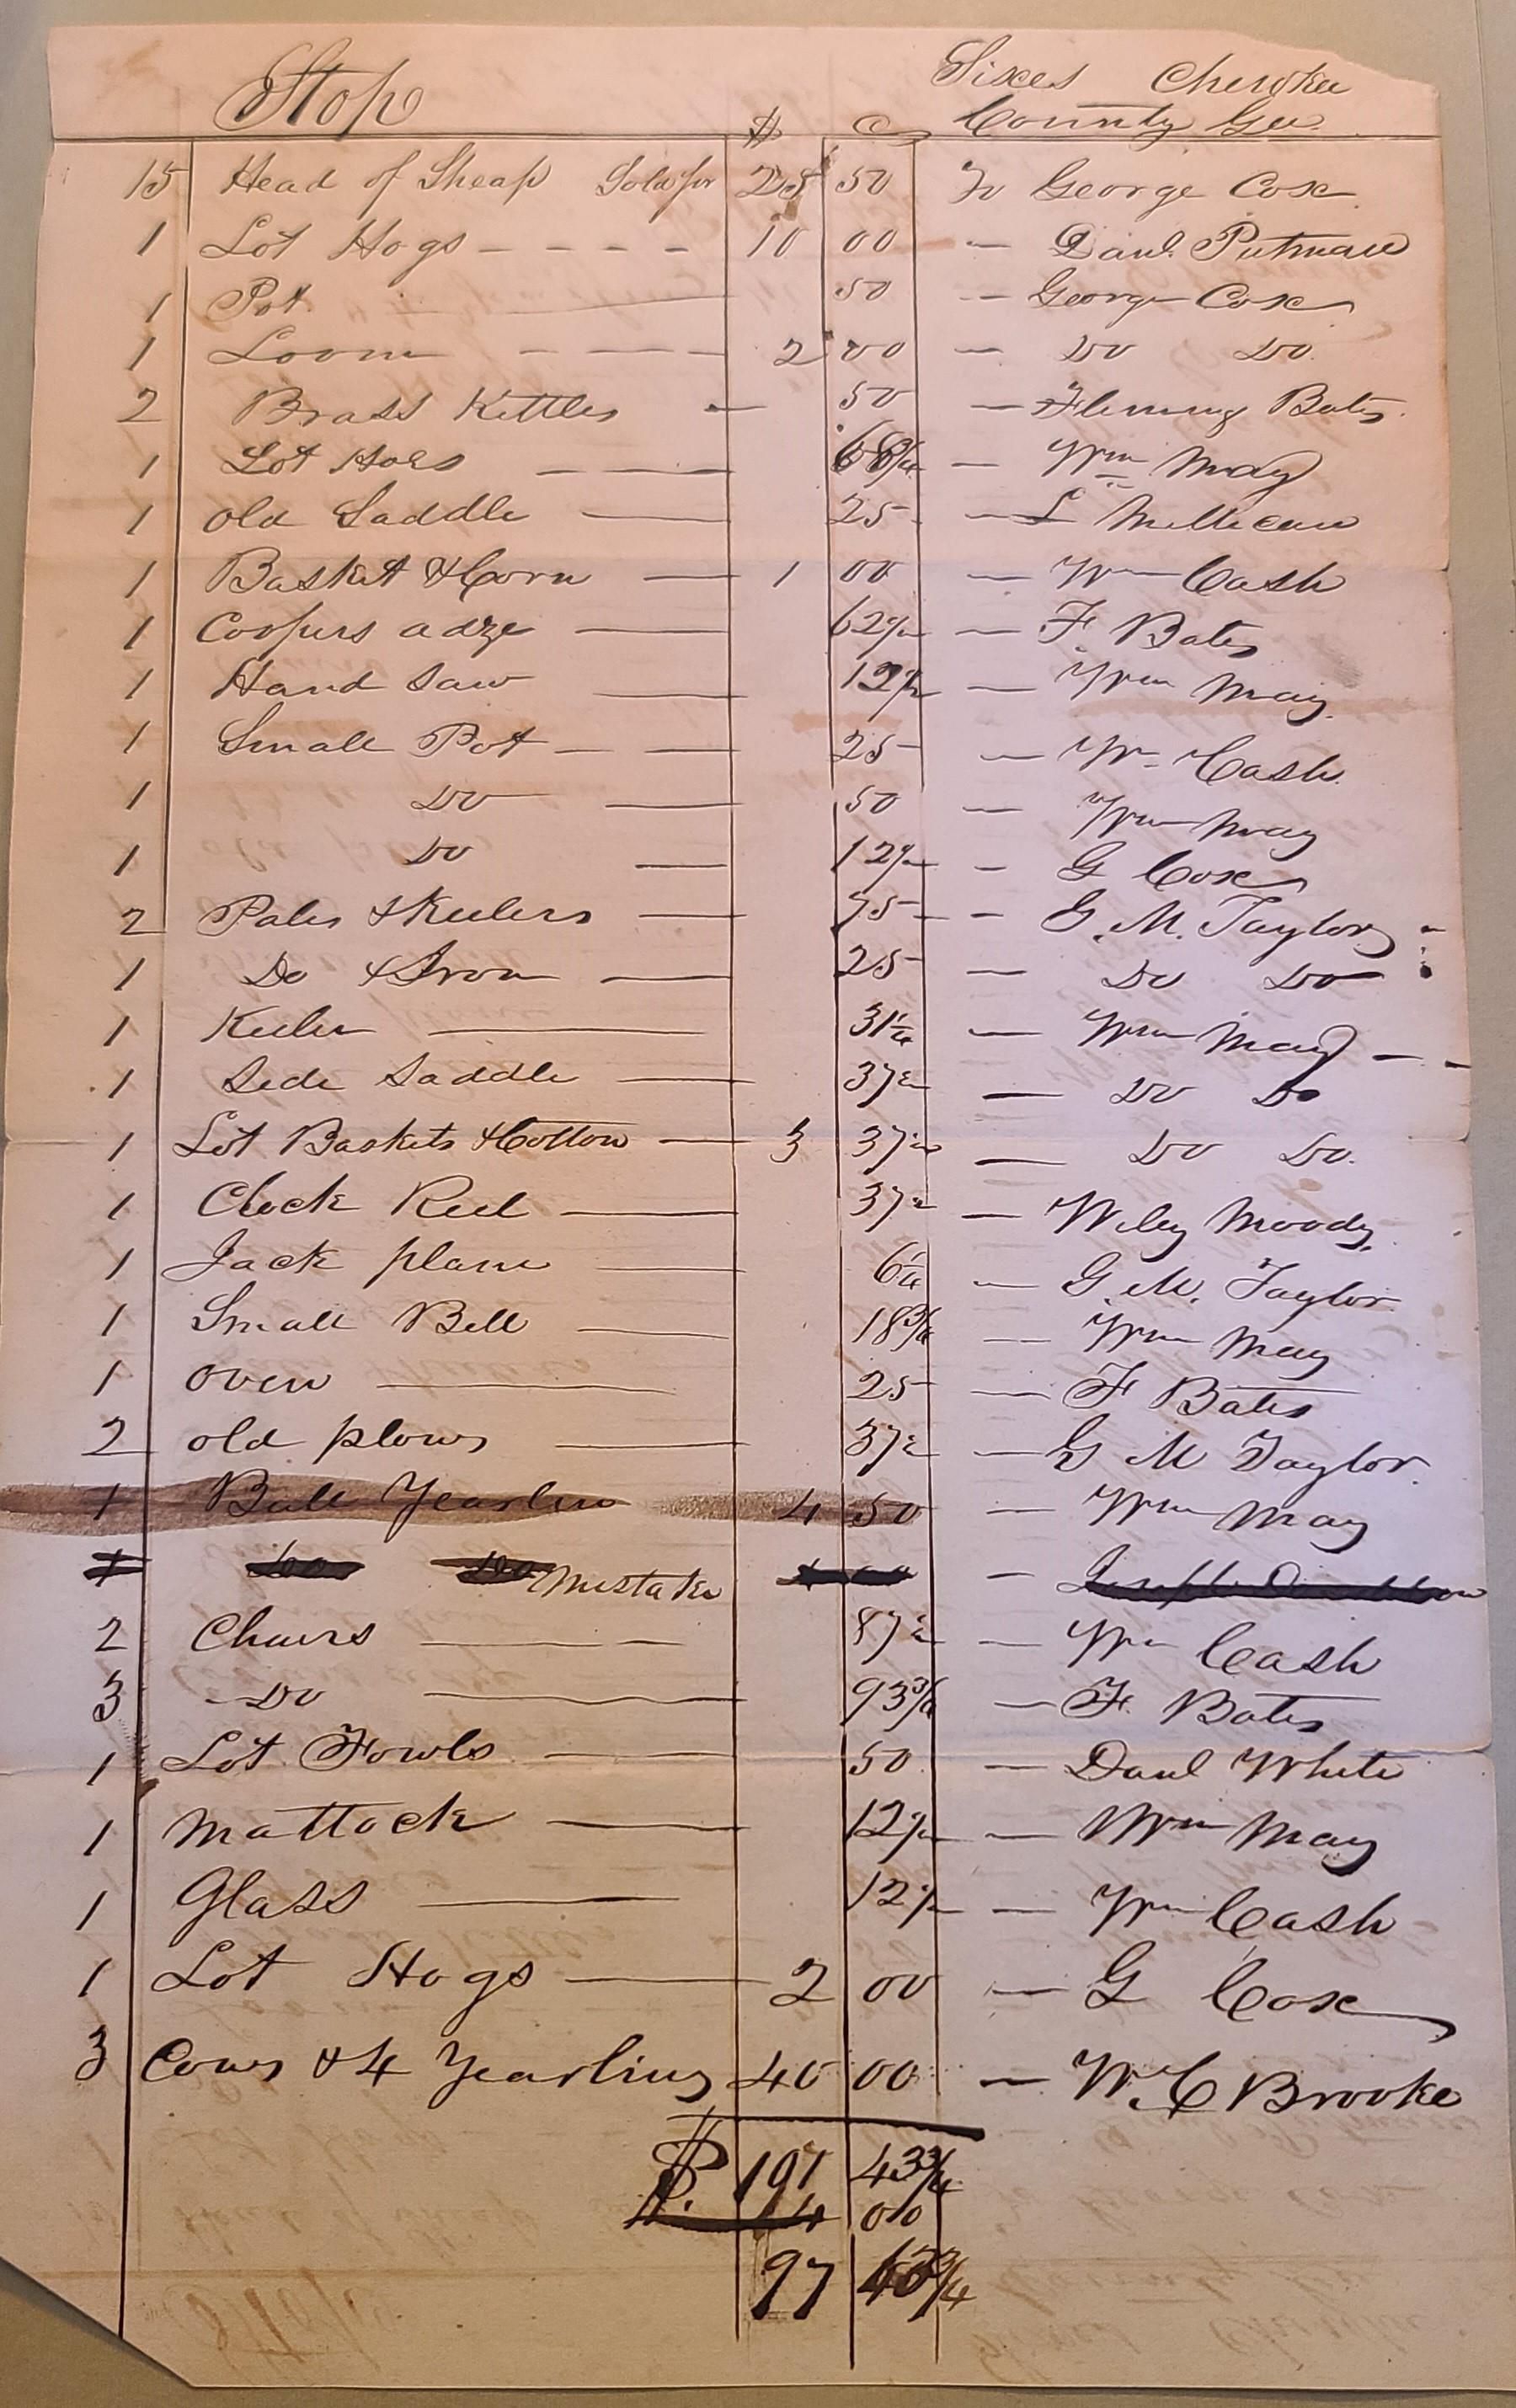 Stop Sixes Cherokee
$ C County Geo.
15 Head of Sheap Sold for 25 50 To George Cox
1 Lot Hogs - - - - 10 00 - Danl. Putman
1 Pot 50 - George Cox
1 Loom - - - - 2 00 - Do Do.
2 Brass Kettles - 50 - Fleming Bates.
1 Lot Hoes - - - 68¾ - Wm May
1 old Saddle - 25 - L Millican
1 Basket & Corn - 1 00 - Wm Cash
1 Coopers adze - 62½ - F Bates
1 Hand Saw - 12½ - Wm May.
1 Small Pot - - 25 - Wm Cash.
1 Do - 50 - Wm May
1 Do - 12½ - G Cox
2 Pales & Keelers - 75 - G. M. Taylor -
1 Do & Iron - 25 - Do Do
1 Keeler - 31¼ - Wm May - -
1 Side Saddle - 37½ - Do Do
1 Lot Baskets & Cotton - 3 37½ - Do Do.
1 Clock Reel - 37½ - Wiley Moody.
1 Jack plane - 6¼ - G. M. Taylor.
1 Small Bell - 18¾ - Wm May
1 oven - 25 - F Bates
2 old plows - 37½ - G M Taylor.
1 Bull Yearlin 4 50 - Wm May
1 Do Do Mistake 4 00 -
2 Chairs - - 87½ - Wm Cash
3 - Do - 93¾ - F. Bates
1 Lot Fowls - - 50 - Danl White
1 Mattock - 12½ - Wm May
1 Glass - 12½ - Wm Cash
1 Lot Hogs - 2 00 - G Cox
3 Cows & 4 Yearlins 40 00 - W. C Brooke
$ 101 43¾
4 00
97 43¾